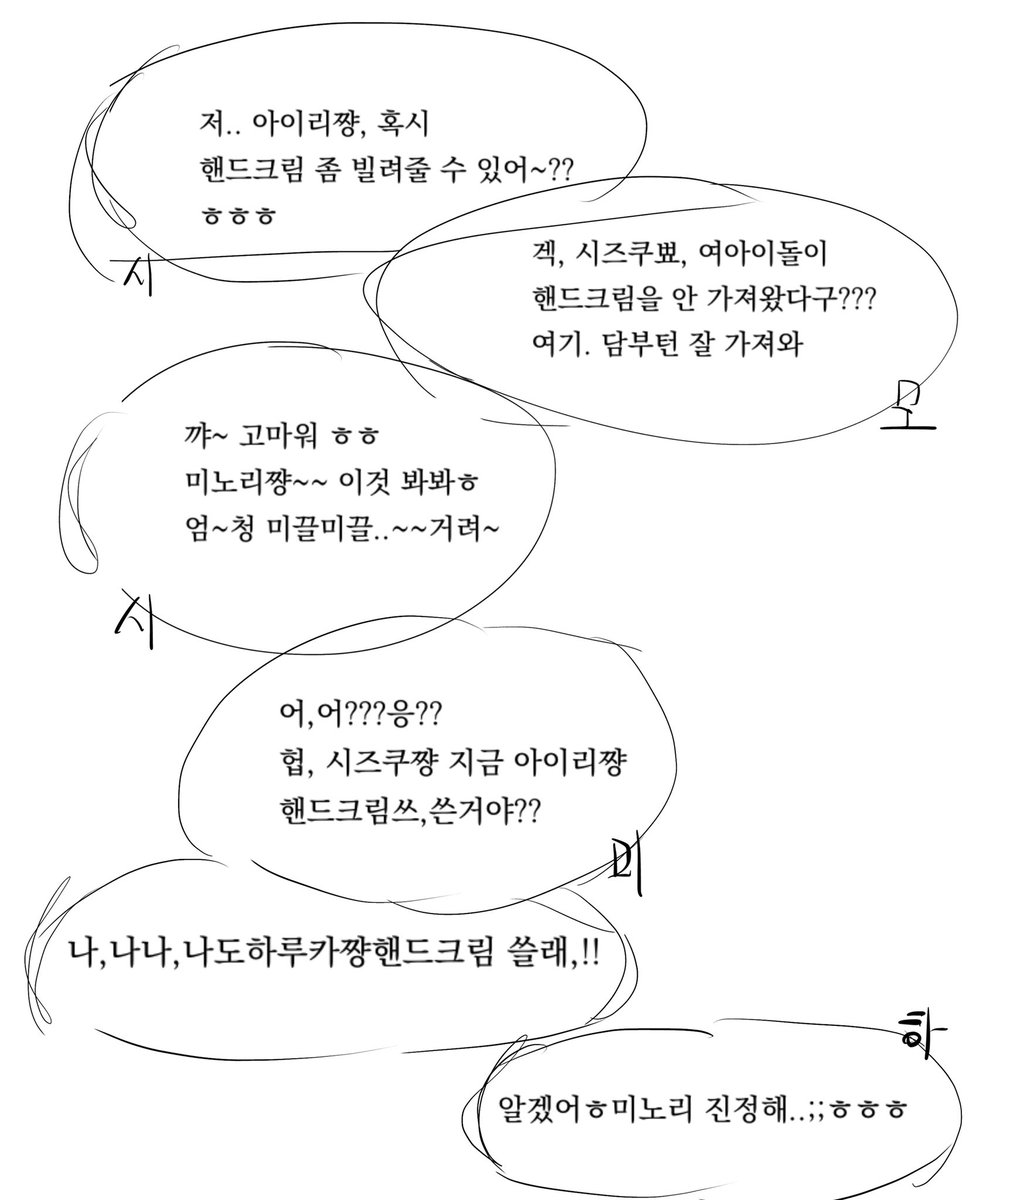 저.. 아이리쨩, 혹시
핸드크림 좀 빌려줄 수 있어~??
ㅎㅎㅎ
시
겍, 시즈쿠뾰, 여아이돌이
핸드크림을 안 가져왔다구???
여기. 담부턴 잘 가져와
모
꺄~ 고마워 ㅎㅎ
미노리쨩~~ 이것 봐봐ㅎ
엄~청 미끌미끌..~~거려~
시
어,어???응??
헙, 시즈쿠쨩 지금 아이리쨩
핸드크림쓰,쓴거야??
미
나,나나,나도하루카쨩핸드크림 쓸래,!!
하
알겠어ㅎ미노리 진정해..;;ㅎㅎㅎ